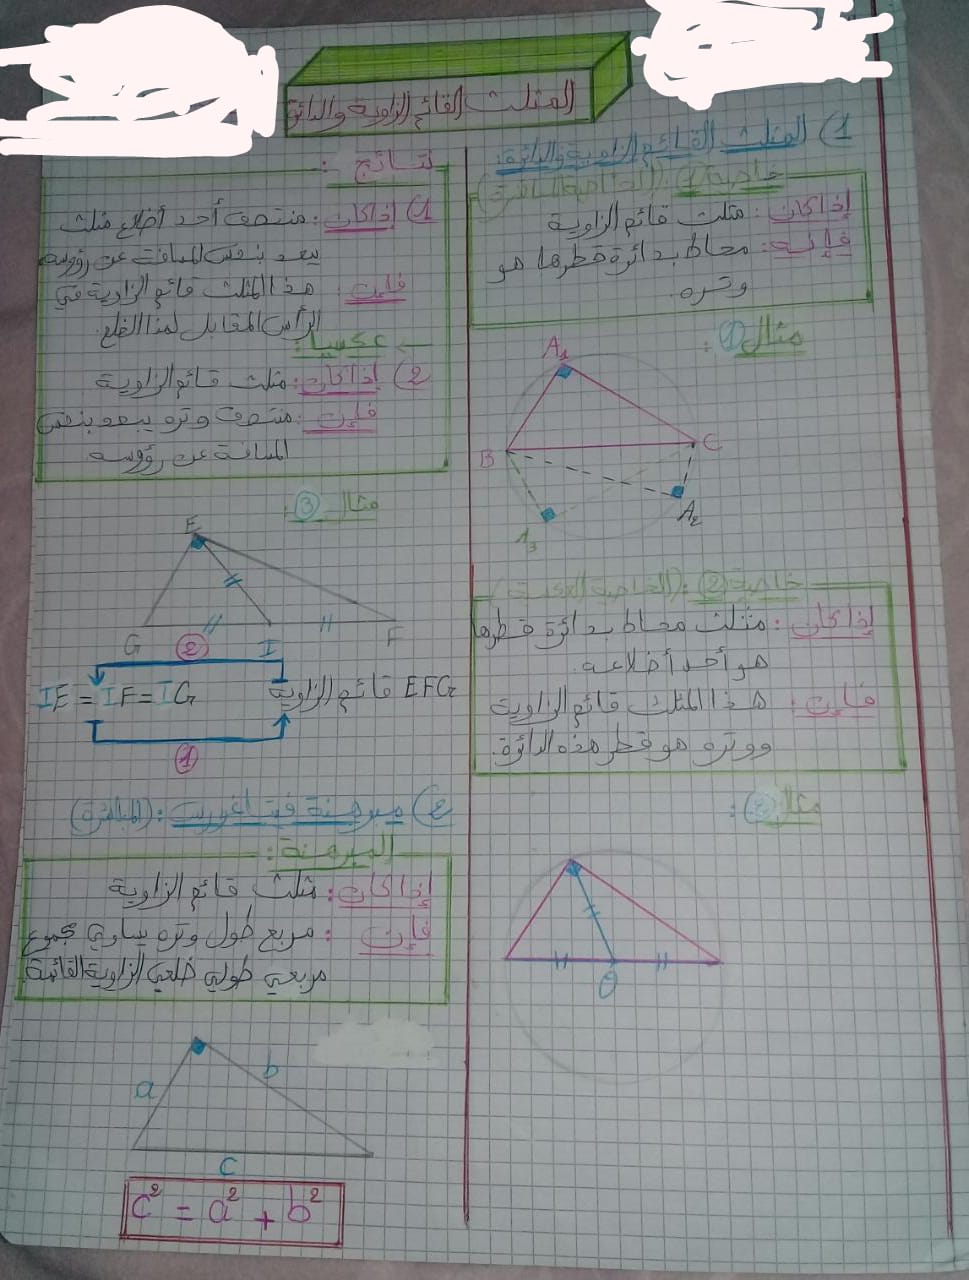 المثلث القائم الزاوية والدائرة
1) المثلث القائم الزاوية والدائرة:
خاصية 1: (الخاصية المباشرة)
إذا كان: مثلث قائم الزاوية
فإنه: محاط بدائرة قطرها هو
وتره.
مثال 1:
A1
B
C
A2
A3
خاصية 2: (الخاصية العكسية)
إذا كان: مثلث محاط بدائرة قطرها
هو أحد أضلاعه.
فإن: هذا المثلث قائم الزاوية
ووتره هو قطر هذه الدائرة.
مثال 2:
O
نتائج:
1) إذا كان: منتصف أحد أضلاع مثلث
يبعد بنفس المسافة عن رؤوسه
فإن: هذا المثلث قائم الزاوية في
الرأس المقابل لهذا الضلع.
عكسيا:
2) إذا كان: مثلث قائم الزاوية
فإن: منتصف وتره يبعد بنفس
المسافة عن رؤوسه
مثال 3:
E
G
I
F
2
IE = IF = IG
EFG قائم الزاوية
1
2) مبرهنة فيتاغورس: (المباشرة)
المبرهنة:
إذا كان: مثلث قائم الزاوية
فإن: مربع طول وتره يساوي مجموع
مربعي طولي ضلعي الزاوية القائمة
a
b
c
c² = a² + b²